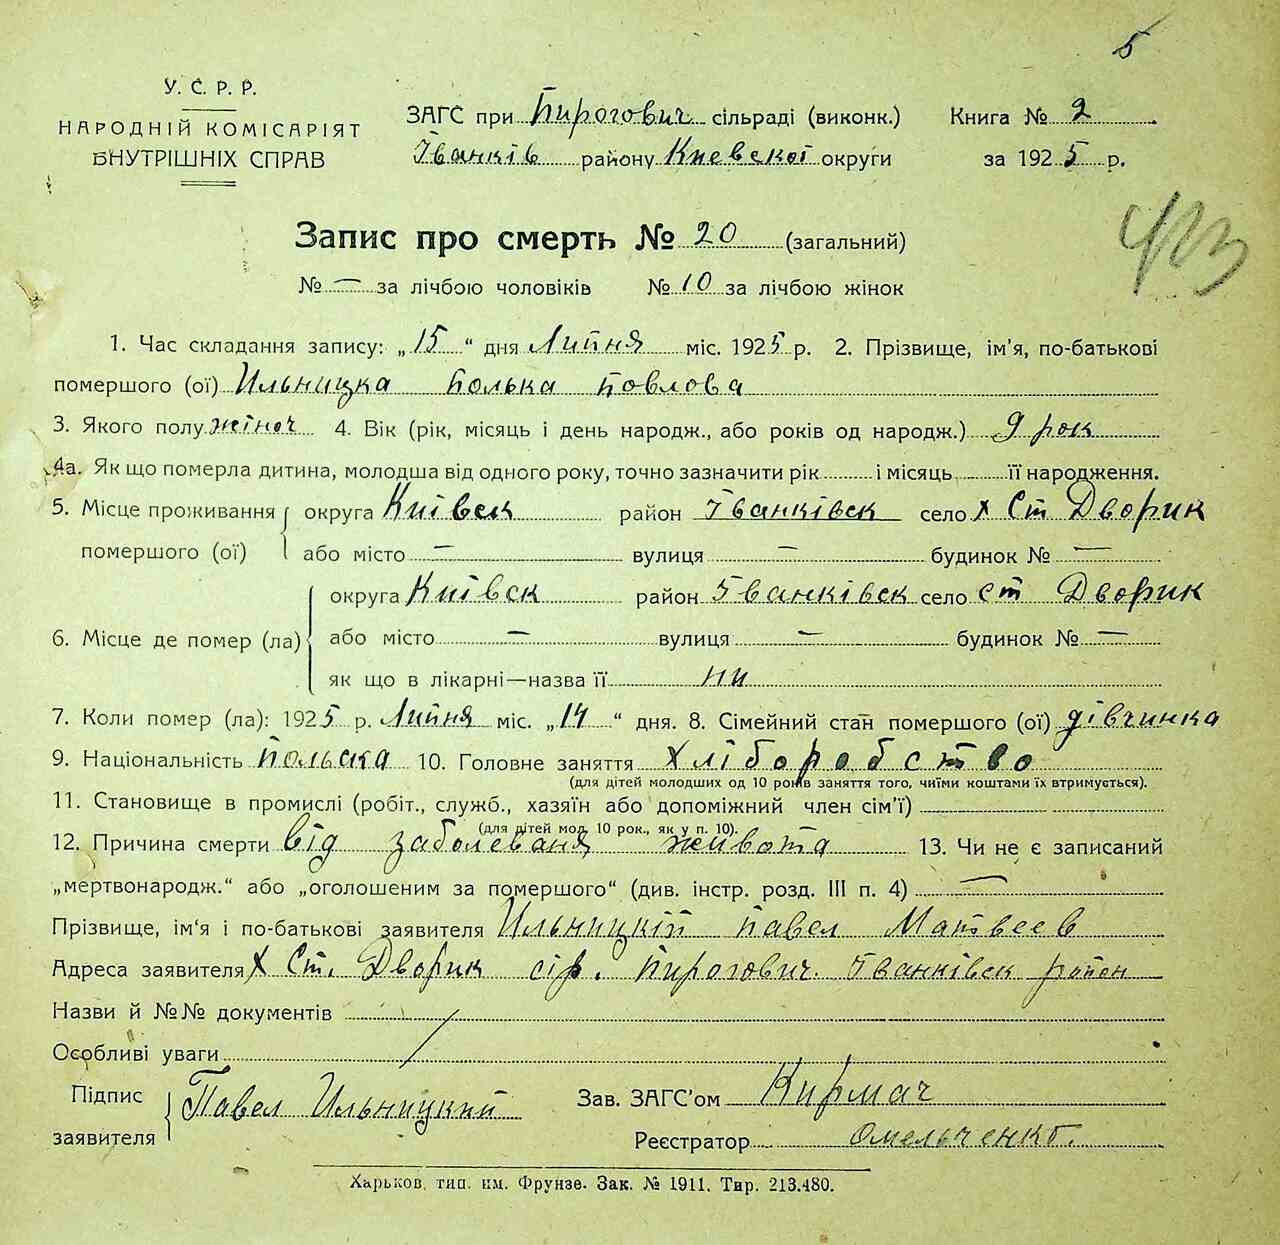 5
У. С. Р. Р.
НАРОДНІЙ КОМІСАРІЯТ
ВНУТРІШНІХ СПРАВ
ЗАГС при Пирогович сільраді (виконк.)
Іванків району Киевскої округи
Книга № 2
за 1925 р.
Запис про смерть № 20 (загальний)
№ — за лічбою чоловіків № 10 за лічбою жінок
1. Час складання запису: „15“ дня Липня міс. 1925 р. 2. Прізвище, ім’я, по-батькові
помершого (ої) Ильницка Полька Павлова
3. Якого полу жіноч 4. Вік (рік, місяць і день народж., або років од народж.) 9 рок
4а. Як що померла дитина, молодша від одного року, точно зазначити рік і місяць її народження.
5. Місце проживання помершого (ої)
округа Київск район Іванківск село х Ст Дворик
або місто — вулиця — будинок № —
6. Місце де помер (ла)
округа Київск район Іванківск село ст Дворик
або місто — вулиця — будинок № —
як що в лікарні—назва її ни
7. Коли помер (ла): 1925 р. Липня міс. „14“ дня. 8. Сімейний стан помершого (ої) дівчинка
9. Національність польска 10. Головне заняття хліборобство
(для дітей молодших од 10 років заняття того, чиїми коштами їх втримується).
11. Становище в промислі (робіт., служб., хазяїн або допоміжний член сім’ї)
(для дітей мол. 10 рок., як у п. 10).
12. Причина смерти від заболеваня живота 13. Чи не є записаний
„мертвонародж.“ або „оголошеним за помершого“ (див. інстр. розд. III п. 4) —
Прізвище, ім‘я і по-батькові заявителя Ильницкій Павел Матвеев
Адреса заявителя х Ст. Дворик с/р. Пирогович. Іванківск район
Назви й №№ документів
Особливі уваги
Підпис заявителя Павел Ильницкий
Зав. ЗАГС’ом Кирмач
Реєстратор Омельченко.
Харьков, тип. им. Фрунзе. Зак. № 1911. Тир. 213.480.